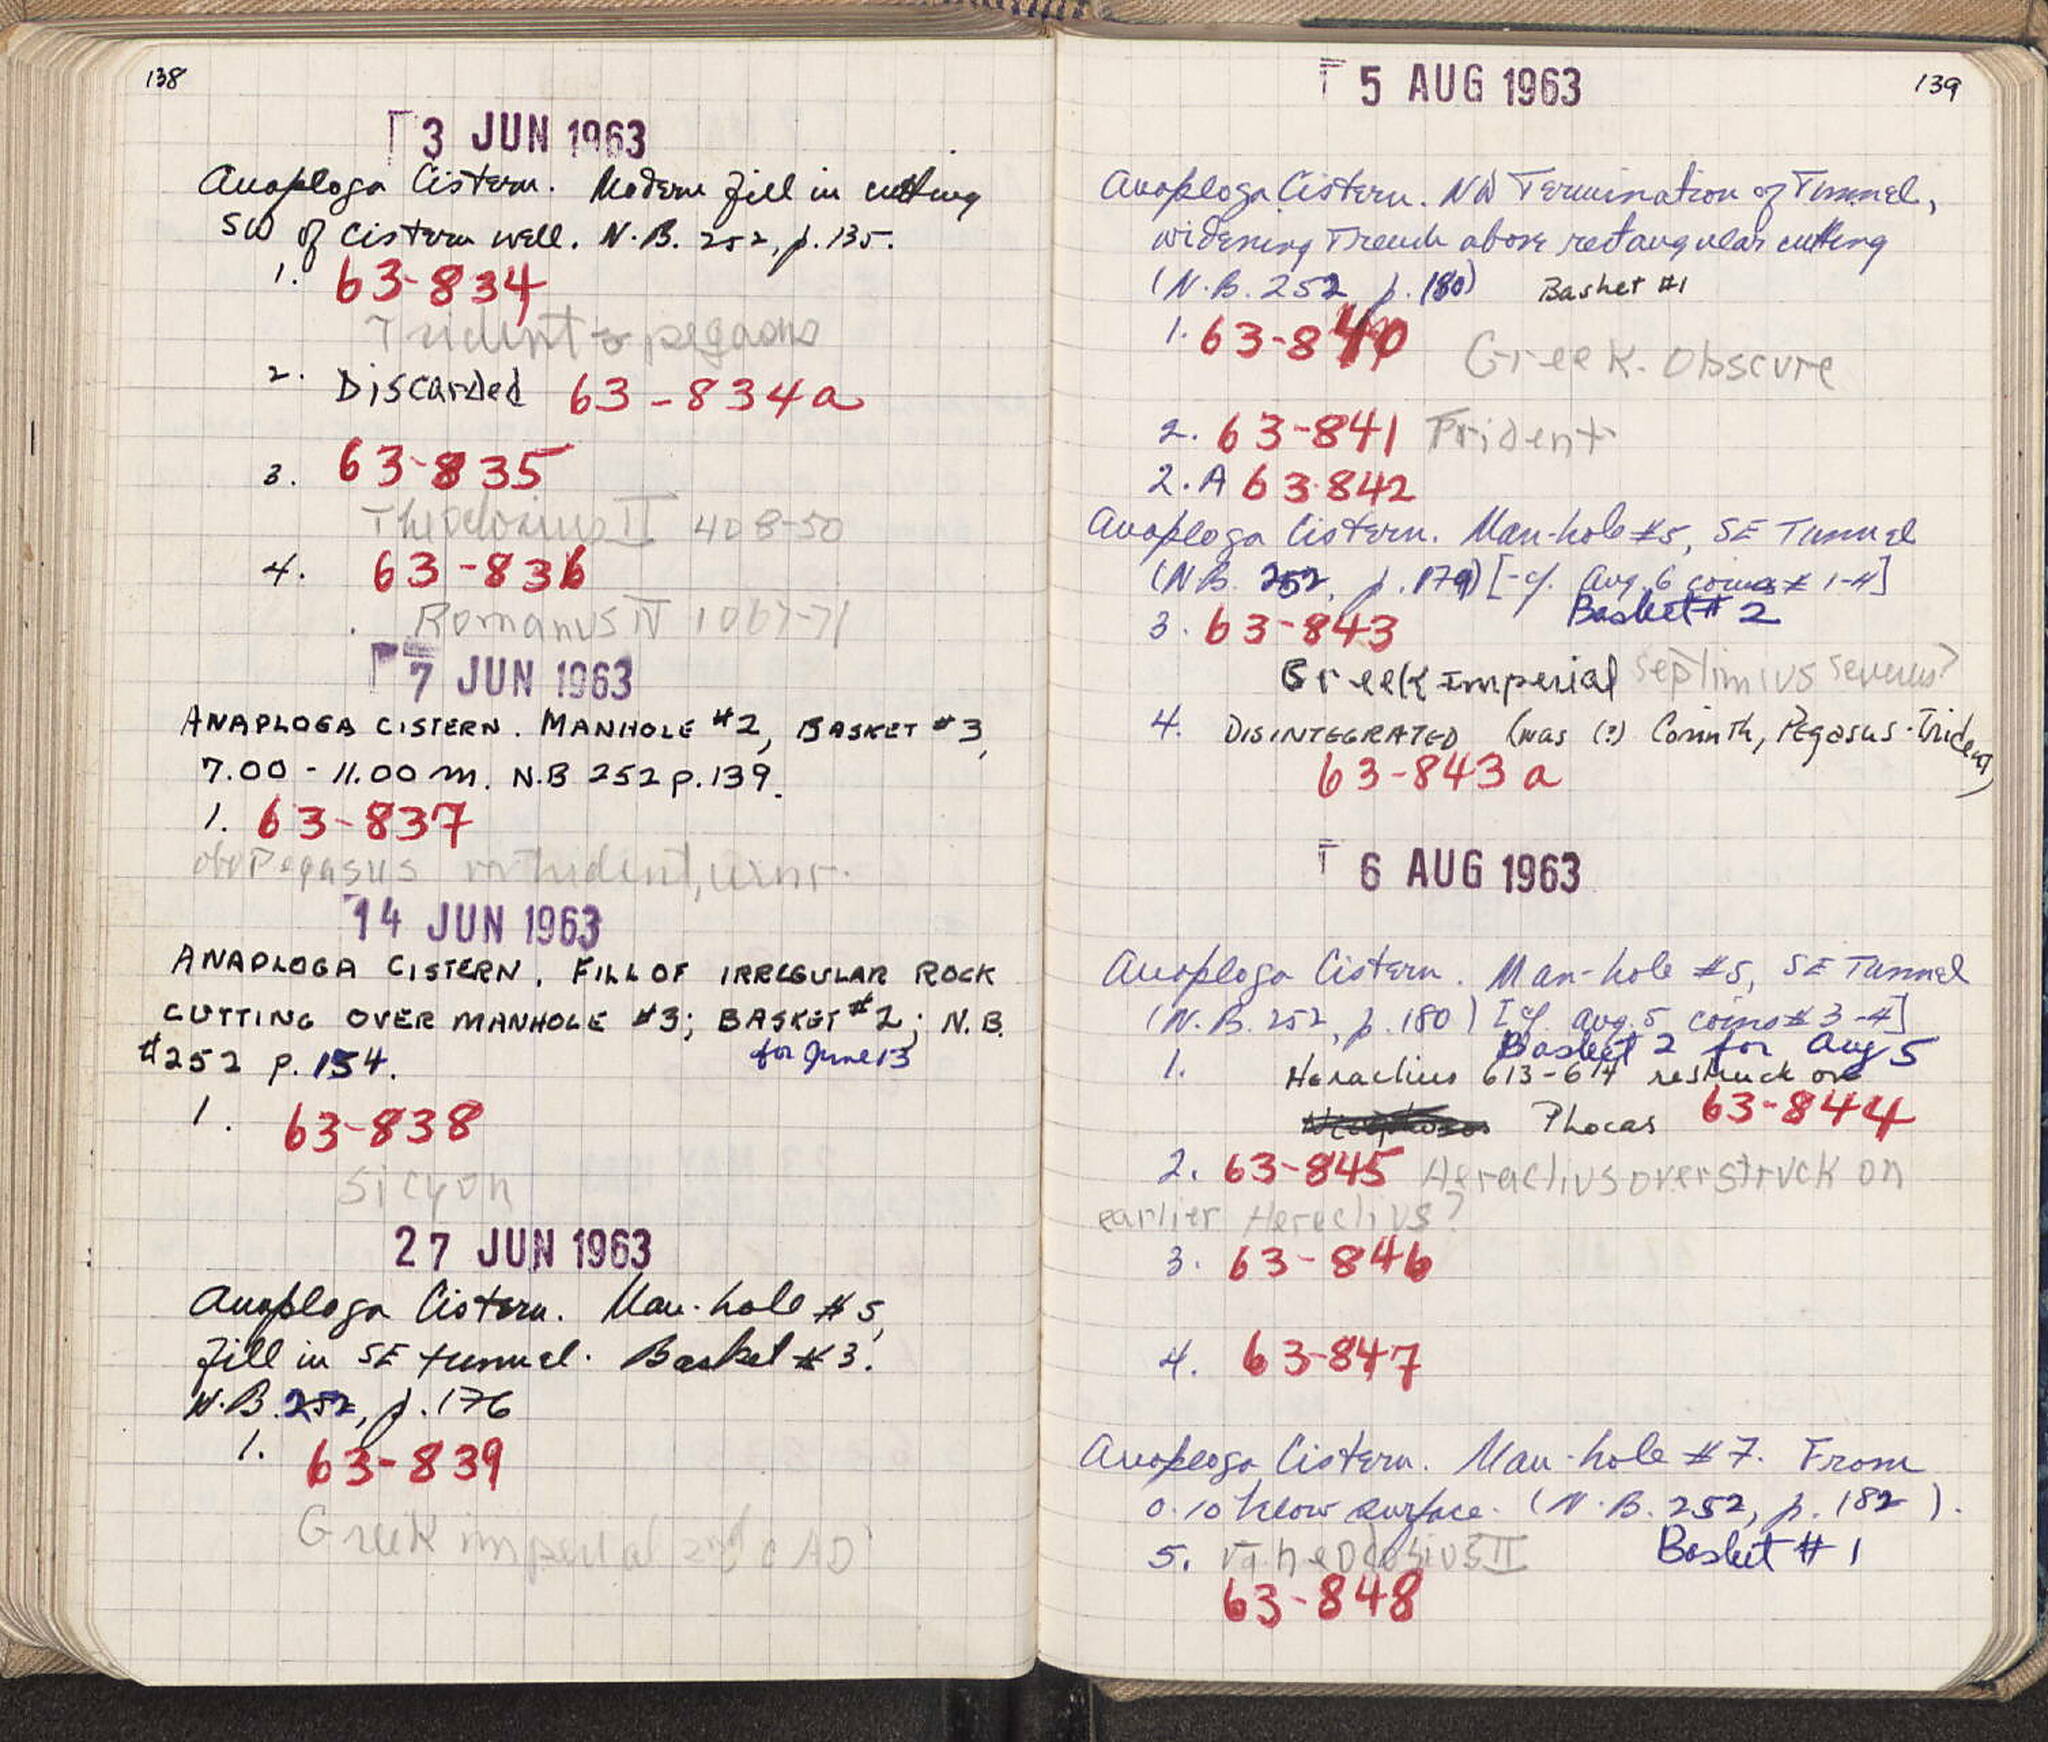 138
3 JUN 1963
Anaploga Cistern. Modern fill in cutting
SW of Cistern well. N.B. 252, p. 135.
1. 63-834
Trident & pegasus
2. Discarded 63-834a
3. 63-835
Theodosius II 408-50
4. 63-836
Romanus IV 1067-71
7 JUN 1963
ANAPLOGA CISTERN. MANHOLE #2, BASKET #3,
7.00 - 11.00 m. N.B 252 p. 139.
1. 63-837
obv Pegasus rv trident,
14 JUN 1963
ANAPLOGA CISTERN. FILL OF IRREGULAR ROCK
CUTTING OVER MANHOLE #3; BASKET #2; N.B.
#252 p. 154. for June 13
1. 63-838
Sicyon
27 JUN 1963
Anaploga Cistern. Man-hole #5,
fill in SE tunnel. Basket #3.
N.B. 252, p. 176
1. 63-839
Greek imperial 2nd c AD
139
5 AUG 1963
Anaploga Cistern. NW Termination of Tunnel,
widening Trench above rectangular cutting
(N.B. 252 p. 180) Basket #1
1. 63-840 Greek. Obscure
2. 63-841 Trident
2. A 63-842
Anaploga Cistern. Man-hole #5, SE Tunnel
(N.B. 252, p. 179) [-cf. Aug. 6 coins # 1-4]
Basket # 2
3. 63-843
Greek Imperial Septimius Severus?
4. DISINTEGRATED (was (?) Corinth, Pegasus-Trident)
63-843a
6 AUG 1963
Anaploga Cistern. Man-hole #5, SE Tunnel
(N.B. 252, p. 180) [cf. Aug. 5 coins # 3-4]
Basket 2 for Aug 5
1. Heraclius 613-614 restruck on
Phocas 63-844
2. 63-845 Heraclius overstruck on
earlier Heraclius?
3. 63-846
4. 63-847
Anaploga Cistern. Man-hole #7. From
0.10 below surface. (N.B. 252, p. 182).
5. Theodosius II Basket # 1
63-848